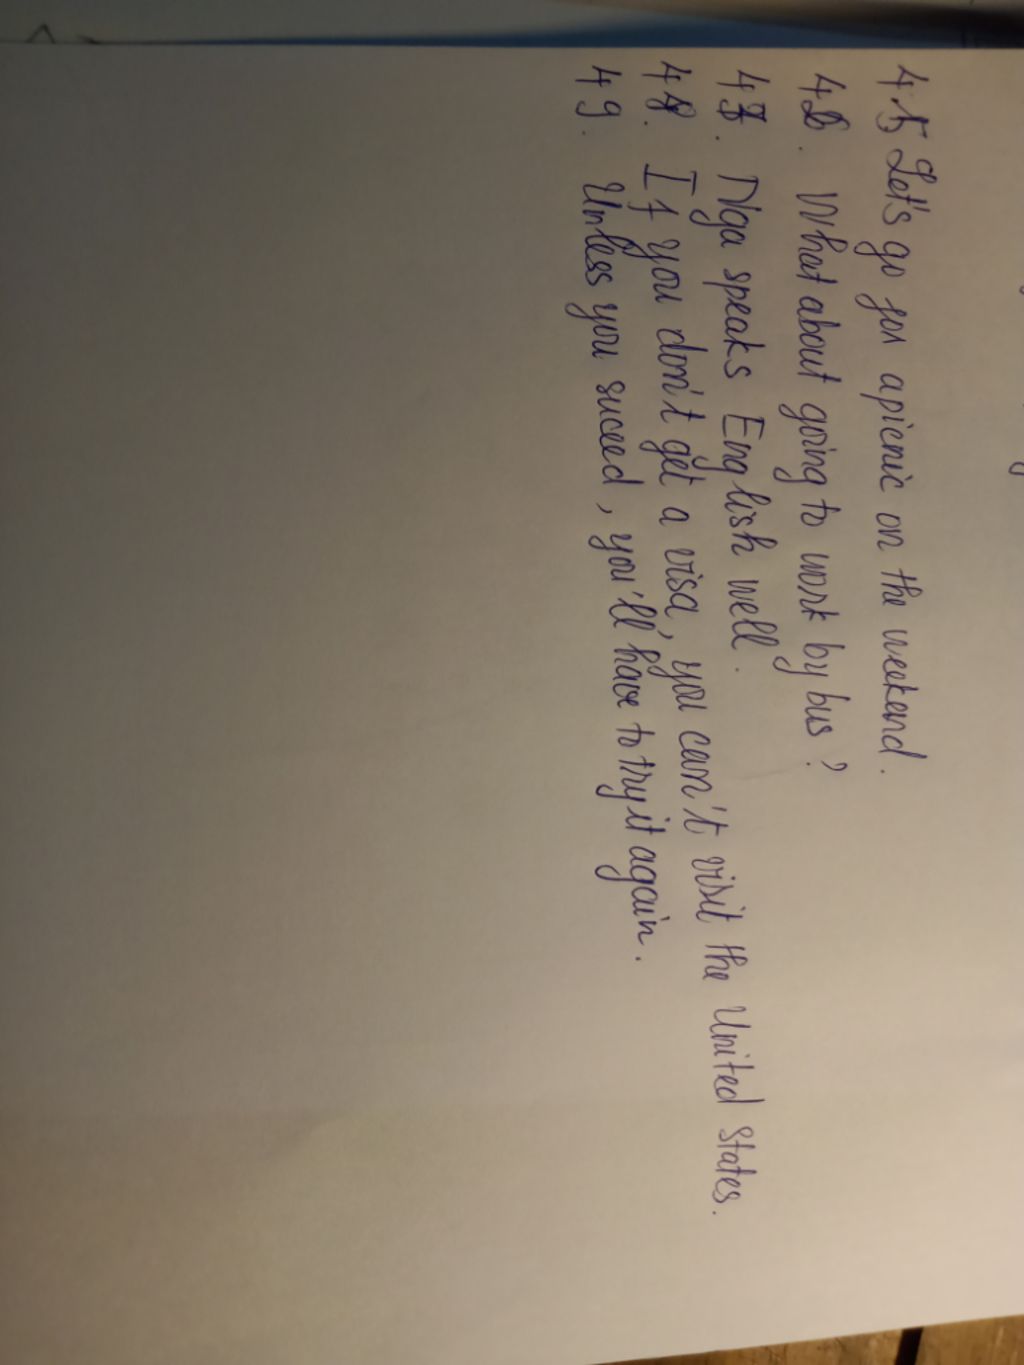 45 Let's go for a picnic on the weekend.
46. What about going to work by bus?
47. Nga speaks English well.
48. If you don't get a visa, you can't visit the United States.
49. Unless you suceed, you'll have to try it again.